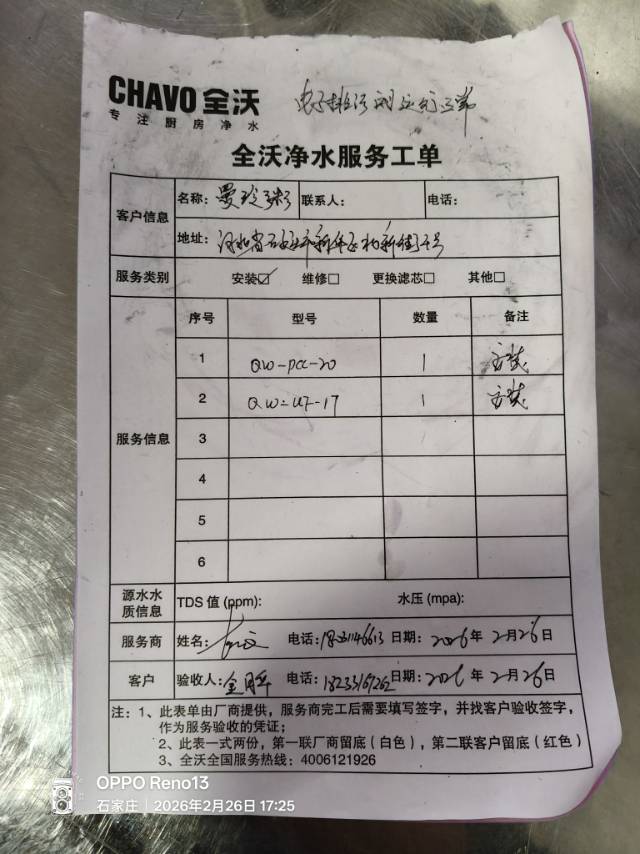 CHAVO 全沃
专注厨房净水
全沃净水服务工单
客户信息
名称：
联系人：
电话：
地址：
服务类别 安装☑ 维修□ 更换滤芯□ 其他□
服务信息
序号 型号 数量 备注
1 QW-PCC-20 1 安装
2 QW-UF-17 1 安装
3
4
5
6
源水水质信息
TDS 值 (ppm): 水压 (mpa):
服务商 姓名： 电话: 日期: 2026年 2月26日
客户 验收人: 电话: 日期: 2026年 2月26日
注：1、此表单由厂商提供，服务商完工后需要填写签字，并找客户验收签字，
作为服务验收的凭证；
2、此表一式两份，第一联厂商留底（白色），第二联客户留底（红色）
3、全沃全国服务热线：4006121926
OPPO Reno13
石家庄 | 2026年2月26日 17:25